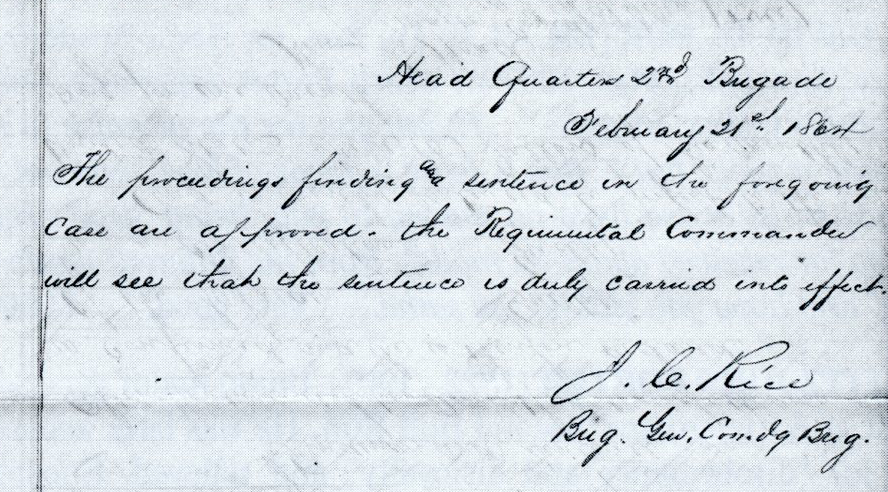 Head Quarters 2nd Brigade
February 21st 1864
The proceedings finding and sentence in the foregoing
Case are approved. the Regimental Commander
will see that the sentence is duly carried into effect.
J. C. Rice
Brig. Gen. Comdg Brig.